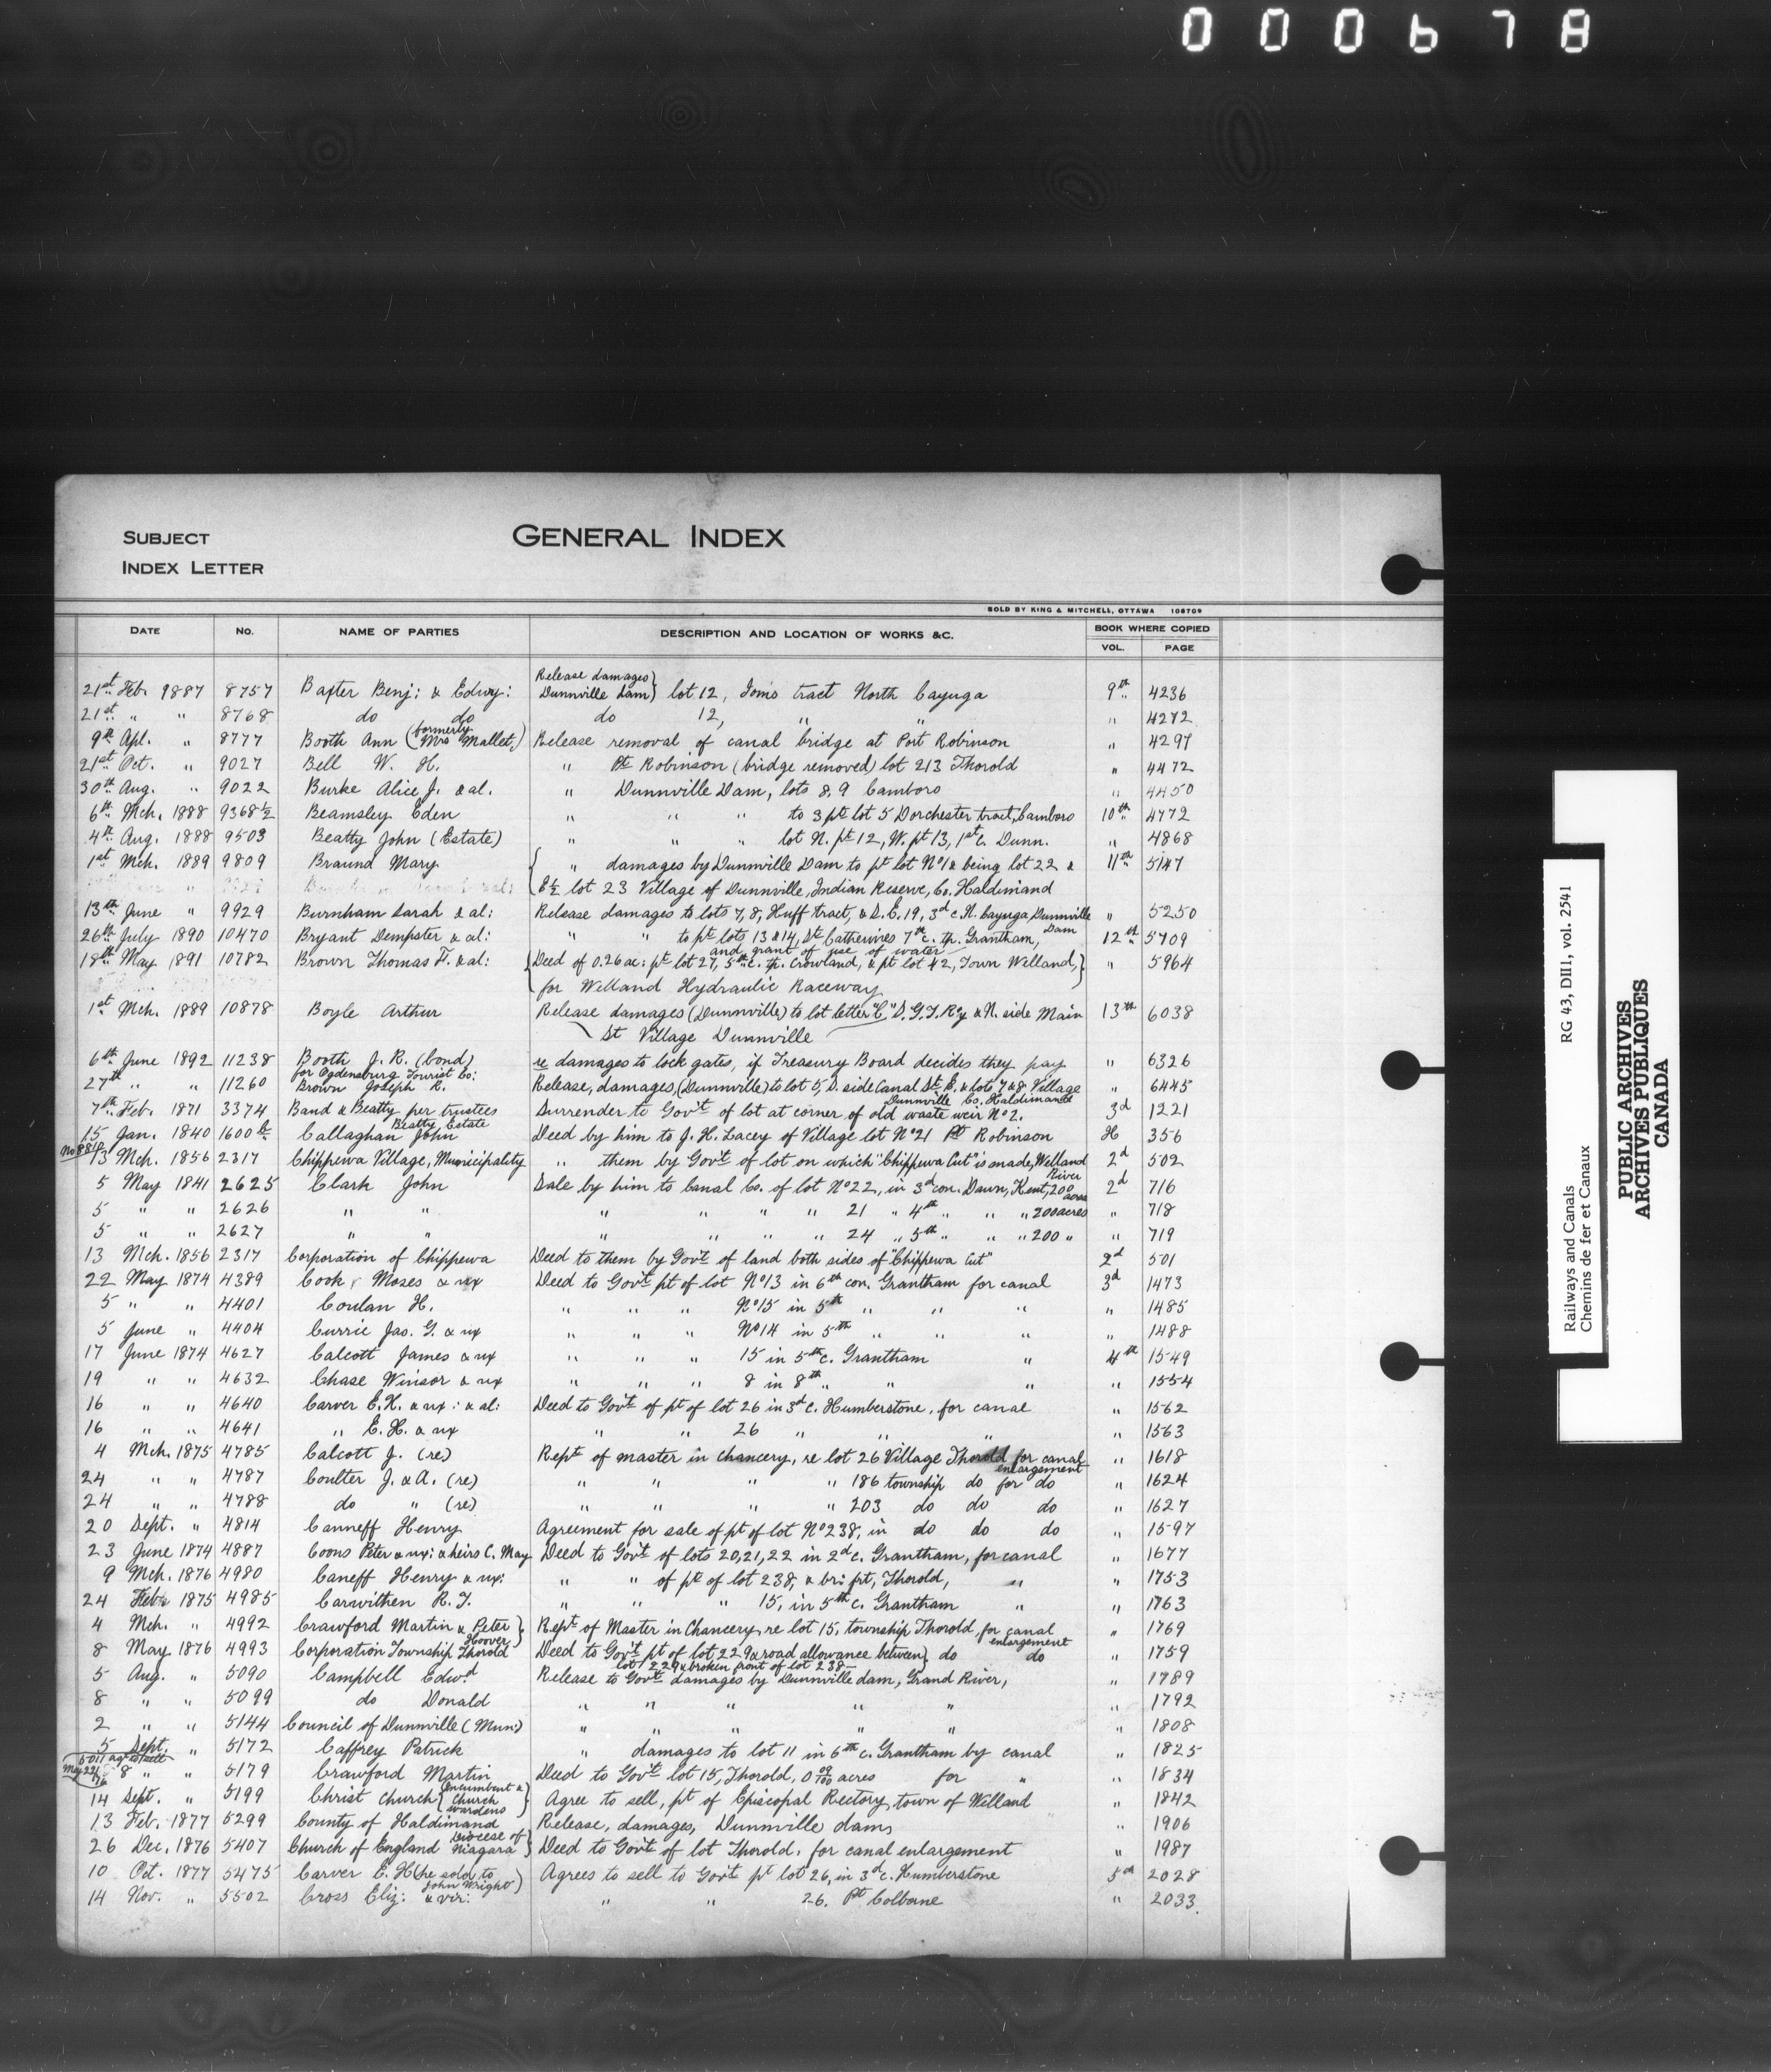 000678
SUBJECT
INDEX LETTER
GENERAL INDEX
SOLD BY KING & MITCHELL, OTTAWA 108709
DATE NO. NAME OF PARTIES DESCRIPTION AND LOCATION OF WORKS &C. BOOK WHERE COPIED
VOL. PAGE
Release damages
21st Feb. 1887 8757 Baxter Benj: & Edwy: Dunnville Dam} lot 12, Jones tract North Cayuga 9th 4236
21st " " 8768 do do do 12, " " " 4272
9th Apl. " 8777 Booth Ann (formerly Mrs Mallet,) Release removal of canal bridge at Port Robinson " 4297
21st Oct. " 9027 Bell W. H. " Pt Robinson (bridge removed) lot 213 Thorold " 4472
30th Aug. " 9022 Burke Alice J. & al. " Dunnville Dam, lots 8, 9 Camboro " 4450
6th Mch. 1888 9368½ Beamsley Eden " " " to 3 pt lot 5 Dorchester tract, Camboro 10th 4772
4th Aug. 1888 9503 Beatty John (Estate) " " " lot N. pt 12, W. pt 13, 1st c. Dunn. " 4868
1st Mch. 1889 9809 Braund Mary { " damages by Dunnville Dam to pt lot No 1 & being lot 22 & 11th 5147
E½ lot 23 Village of Dunnville, Indian Reserve, Co. Haldimand
13th June " 9929 Burnham Sarah & al: Release damages to lots 7, 8, Huff tract, & S.E. 19, 3d c. N. Cayuga, Dunnville Dam " 5250
26th July 1890 10470 Bryant Dempster & al: " " to pt lots 13 & 14, St Catherines 7th c. tp. Grantham, 12th 5709
and grant of use of water
18th May 1891 10782 Brown Thomas F. & al: {Deed of 0.26 ac: pt lot 27, 5th c. tp. Crowland, & pt lot 42, Town Welland,} " 5964
for Welland Hydraulic Raceway
1st Mch. 1889 10878 Boyle Arthur Release damages (Dunnville) to lot letter "C" S. G. T. Ry & N. side Main 13th 6038
St Village Dunnville
6th June 1892 11238 Booth J. R. (bond) re damages to lock gates, if Treasury Board decides they pay " 6326
for Ogdensburg Tourist Co:
27th " " 11260 Brown Joseph R. Release, damages, (Dunnville) to lot 5, S. side Canal St E. & lots 7 & 8 Village " 6445
Dunnville Co. Haldimand
7th Feb. 1871 3374 Band & Beatty per trustees Surrender to Gov't of lot at corner of old waste weir No 2. 3d 1221
Beatty Estate
15 Jan. 1840 1600 Callaghan John Deed by him to J. H. Lacey of Village lot No 21 Pt Robinson H 356
13 Mch. 1856 2317 Chippewa Village, Municipality " them by Gov't of lot on which "Chippewa Cut" is made, Welland River 2d 502
5 May 1841 2625 Clark John Sale by him to Canal Co. of lot No 22, in 3d con. Dawn, Kent, 200 acres 2d 716
5 " " 2626 " " " " " " 21 " 4th " " " 200 acres " 718
5 " " 2627 " " " " " " 24 " 5th " " " 200 " " 719
13 Mch. 1856 2317 Corporation of Chippewa Deed to them by Gov't of land both sides of "Chippewa Cut" 2d 501
22 May 1874 4389 Cook Moses & ux Deed to Gov't pt of lot No 13 in 6th con. Grantham for canal 3d 1473
5 " " 4401 Coulan H. " " " No 15 in 5th " " " " 1485
5 June " 4404 Currie Jas. G. & ux " " " No 14 in 5th " " " 1488
17 June 1874 4627 Calcott James & ux " " " 15 in 5th c. Grantham " 4th 1549
19 " " 4632 Chase Winsor & ux " " " 8 in 8th " " " " 1554
16 " " 4640 Carver E. H. & ux: & al: Deed to Gov't of pt of lot 26 in 3d c. Humberstone, for canal " 1562
16 " " 4641 " E. H. & ux " " 26 " " " 1563
4 Mch. 1875 4785 Calcott J. (re) Rept of master in chancery, re lot 26 Village Thorold for canal enlargement " 1618
24 " " 4787 Coulter J. & A. (re) " " " " 186 township do for do " 1624
24 " " 4788 do " (re) " " " " 203 do do do " 1627
20 Sept. " 4814 Canneff Henry Agreement for sale of pt of lot No 238, in do do do " 1597
23 June 1874 4887 Coons Peter & ux: & heirs C. May Deed to Gov't of lots 20, 21, 22 in 2d c. Grantham, for canal " 1677
9 Mch. 1876 4980 Caneff Henry & ux: " " of pt of lot 238, & bri frt, Thorold, " " 1753
24 Feb. 1875 4985 Carwithen R. T. " " " 15, in 5th c. Grantham " " 1763
4 Mch. " 4992 Crawford Martin & Peter Hoover} Rept of Master in Chancery re lot 15, township Thorold, for canal enlargement " 1769
8 May 1876 4993 Corporation Township Thorold Deed to Gov't pt of lot 229 & road allowance between} do do " 1759
lot 229 & broken front of lot 238
5 Aug. " 5090 Campbell Edwd Release to Gov't damages by Dunnville dam, Grand River, " 1789
8 " " 5099 do Donald " " " " " " 1792
2 " " 5144 Council of Dunnville (Mun:) " " " " " " 1808
5 Sept. " 5172 Caffrey Patrick " damages to lot 11 in 6th c. Grantham by canal " 1825
8 " " 5179 Crawford Martin Deed to Gov't lot 15, Thorold, 0 09/100 acres for " " 1834
14 Sept. " 5199 Christ Church {Incumbent & Church Wardens} Agree to sell, pt of Episcopal Rectory, town of Welland " 1842
13 Feb. 1877 5299 County of Haldimand Release, damages, Dunnville dam " 1906
26 Dec. 1876 5407 Church of England Diocese of Niagara} Deed to Gov't of lot Thorold, for canal enlargement " 1987
10 Oct. 1877 5475 Carver E. H. (he sold to John Wright) Agrees to sell to Gov't pt lot 26, in 3d c. Humberstone 5th 2028
14 Nov. " 5502 Cross Eliz: & vir: " " 26. Pt Colborne " 2033.
RG 43, DIII, vol. 2541
Railways and Canals
Chemins de fer et Canaux
PUBLIC ARCHIVES
ARCHIVES PUBLIQUES
CANADA